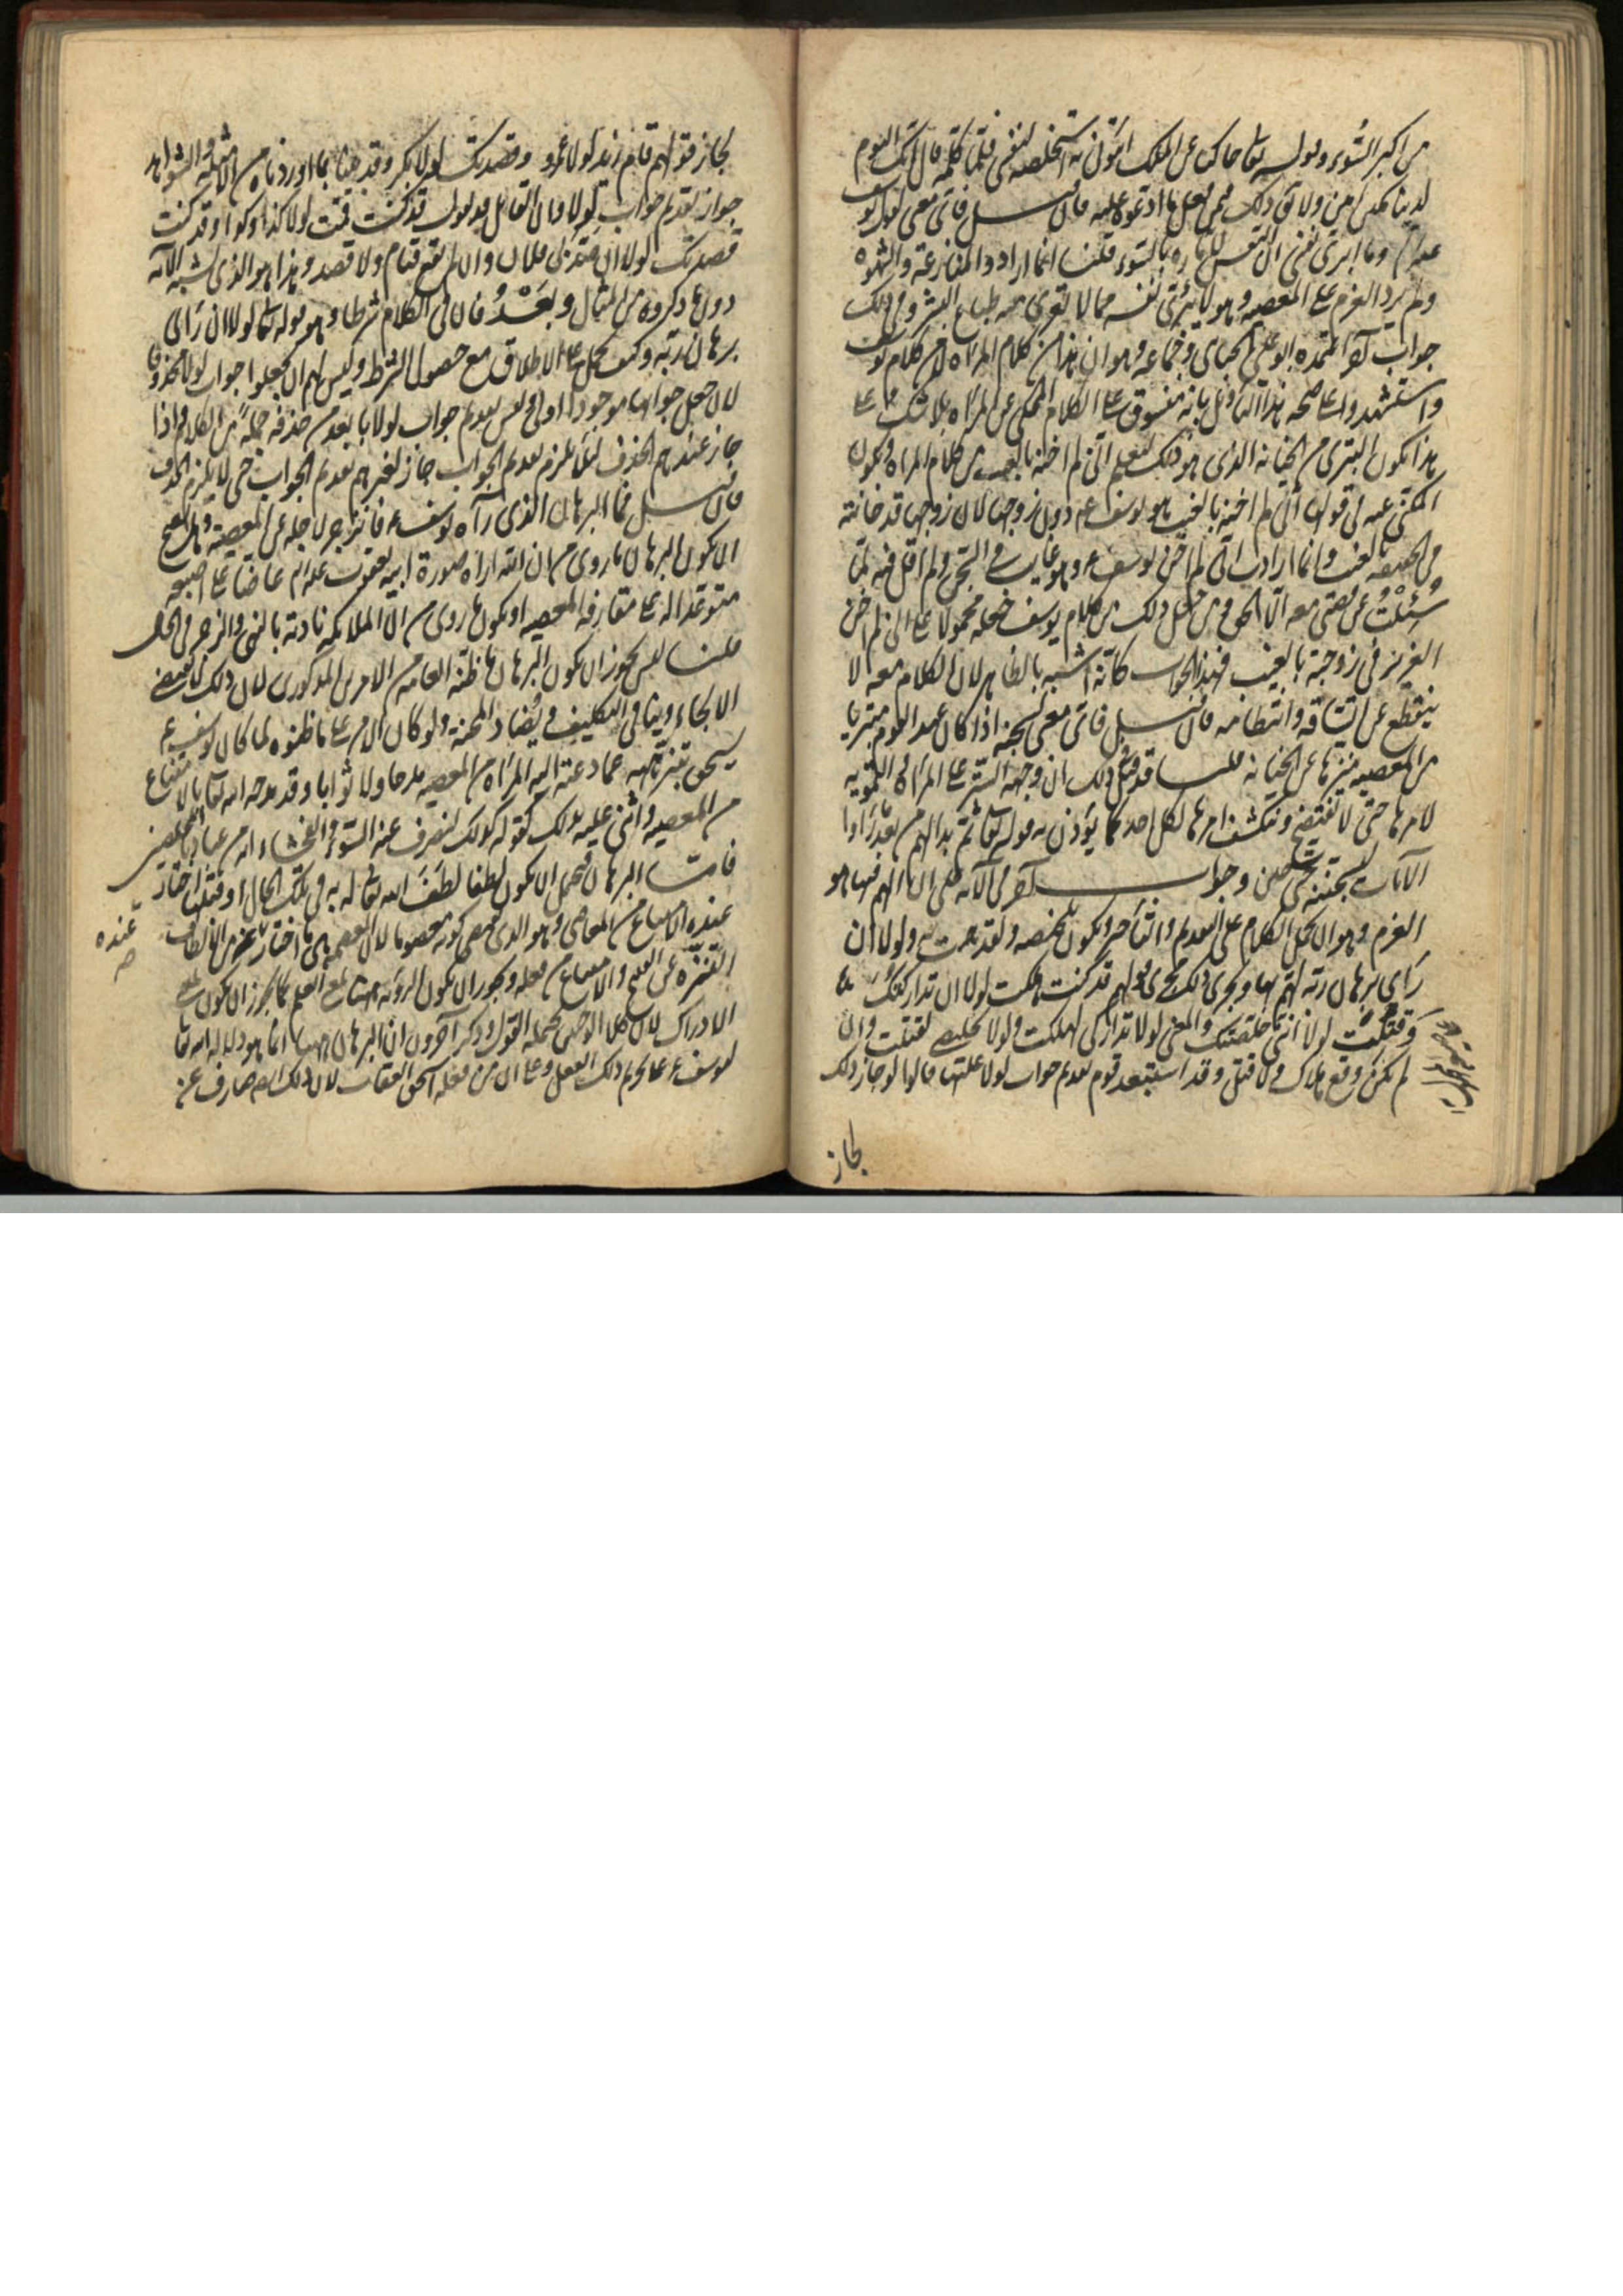 من اكبر السوء وقوله تعالى حاكيا عن الملك ائتوني به استخلصه لنفسي فلما كلمه قال انك اليوم
لدينا مكين امين ولا يقال ذلك فيمن فعل ما ادعوه عليه فان قيل فاى معنى لقول يوسف
عليه السلام وما ابرئ نفسي ان النفس لامارة بالسوء قلنا انما اراد الدعاء والمنازعة والشهوة
ولم يرد العزم على المعصية وهو لا يبرئ نفسه مما لا تعرى منه طباع البشر وفي ذلك
جواب آخر اعتمده ابو على الجبائى وجماعة وهو ان هذا من كلام المراة لا من كلام يوسف
واستشهدوا على صحة هذا التاويل بانه منسوق على الكلام المحكى عن المراة بلا شك فعلى
هذا يكون التبرئ من الخيانة الذي هو ذلك ليعلم انى لم اخنه بالغيب من كلام المراة ويكون
المكنى عنه في قولها انى لم اخنه بالغيب هو يوسف ع دون زوجها لان زوجها قد خانته
في الحقيقة بالغيب وانما ارادت انى لم اخن يوسف ع وهو غائب في السجن ولم اقل فيه لما
سئلت عن قصتى معه الا الحق ومن جعل ذلك من كلام يوسف جعله محمولا على انى لم اخن
العزيز في زوجته بالغيب فهذا الجواب كانه اشبه بالظاهر لان الكلام معه لا
ينقطع عن اتساقه وانتظامه فان قيل فاى معنى لسجنه اذا كان عند القوم متبريا
من المعصية متنزها عن الخيانة قلنا قد قيل ذلك ان وجهه الستر على المراة والتمويه
لامرها حتى لا تفتضح وينكشف امرها لكل احد كما يؤذن به قوله تعالى ثم بدا لهم من بعد ما راوا
الآيات ليسجننه حتى حين وجواب آخر في الآية على ان الهم فيها هو
العزم وهو ان يحمل الكلام على التقديم والتاخير ويكون تلخيصه ولقد همت به ولولا ان
راى برهان ربه لهم بها ويجرى ذلك مجرى قولهم قد كنت هلكت لولا ان تداركتك
وقتلت لولا انى خلصتك والمعنى لولا تداركى لهلكت ولولا تخليصى لقتلت وان
لم يكن وقع هلاك ولا قتل وقد استبعد قوم تقديم جواب لولا عليها قالوا لو جاز ذلك
لجاز
لجاز قولهم قام زيد لولا عمرو وقصدتك لولا بكر وقد بينا بما اوردناه من الامثلة والشواهد
جواز تقديم جواب لولا وان القائل قد يقول قد كنت قمت لولا كذا وكذا وقد كنت
قصدتك لولا ان صدنى فلان وان لم يقع قيام ولا قصد وهذا هو الذى يشبه الآية
دون ما ذكروه من المثال وبعد فان في الكلام شرطا وهو قوله تعالى لولا ان راى
برهان ربه وكيف يحمل على الاطلاق مع حصول الشرط وليس لهم ان يجعلوا جواب لولا محذوفا
لان جعل جوابها موجودا اولى وليس تقديم جواب لولا بابعد من حذفه جملة من الكلام واذا
جاز عندهم الحذف لئلا يلزم تقديم الجواب جاز لغيرهم تقديم الجواب حتى لا يلزم الحذف
فان قيل فما البرهان الذى رآه يوسف ع فانزجر لاجله عن المعصية وهل يصح
ان يكون البرهان ما روى من ان الله اراه صورة ابيه يعقوب عليه السلام عاضا على اصبعه
متوعدا له على مقارفة المعصية او يكون ما روى من ان الملائكة نادته بالنهى والزجر في الحال
قلنا ليس يجوز ان يكون البرهان ما ظنه العامة من الامرين المذكورين لان ذلك يقتضى
الالجاء وينافى التكليف ويضاد المحنة ولو كان الامر على ما ظنوه لما كان يوسف ع
يستحق بتنزيهه عما دعته اليه المراة من المعصية مدحا ولا ثوابا وقد مدحه الله تعالى بالامتناع
من المعصية واثنى عليه بذلك كقوله كذلك لنصرف عنه السوء والفحشاء انه من عبادنا المخلصين
فاما البرهان فيحتمل ان يكون لطفا لطف الله تعالى له به في تلك الحال او قبلها اختار
عنده الامتناع من المعاصى وهو الذى يقتضى كونه معصوما لان العصمة هي ما اختار عنده من الالطاف
عنده
صح
التنزه عن القبيح والامتناع من فعله ويجوز ان يكون الرؤية هاهنا بمعنى العلم كما يجوز ان يكون بمعنى
الادراك لان كلا الوجهين يحتمله القول وذكر آخرون ان البرهان هاهنا انما هو دلالة الله تعالى
ليوسف ع على تحريم ذلك الفعل وعلى ان من فعله استحق العقاب لان ذلك ايضا صارف عن